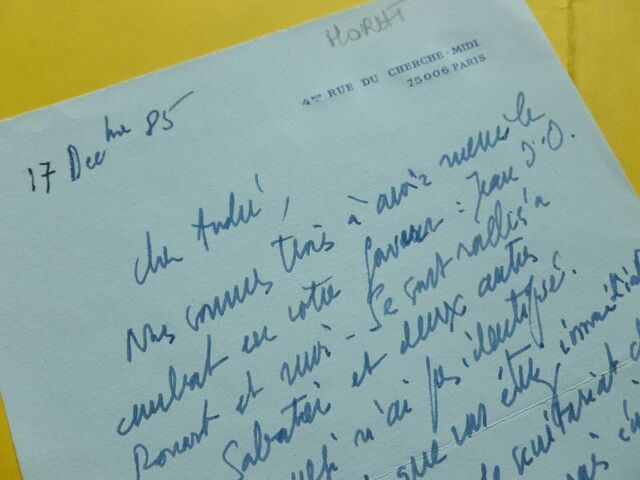 MORHT
4BIS RUE DU CHERCHE-MIDI
75006 PARIS
17 Decbre 85
Cher André,
Nous sommes trois à avoir mené le
combat en votre faveur : Jean d'O.
Rouart et moi - Se sont ralliés à
Sabatier et deux autres
n'ai pas identifiés.
que vous étiez
secrétariat